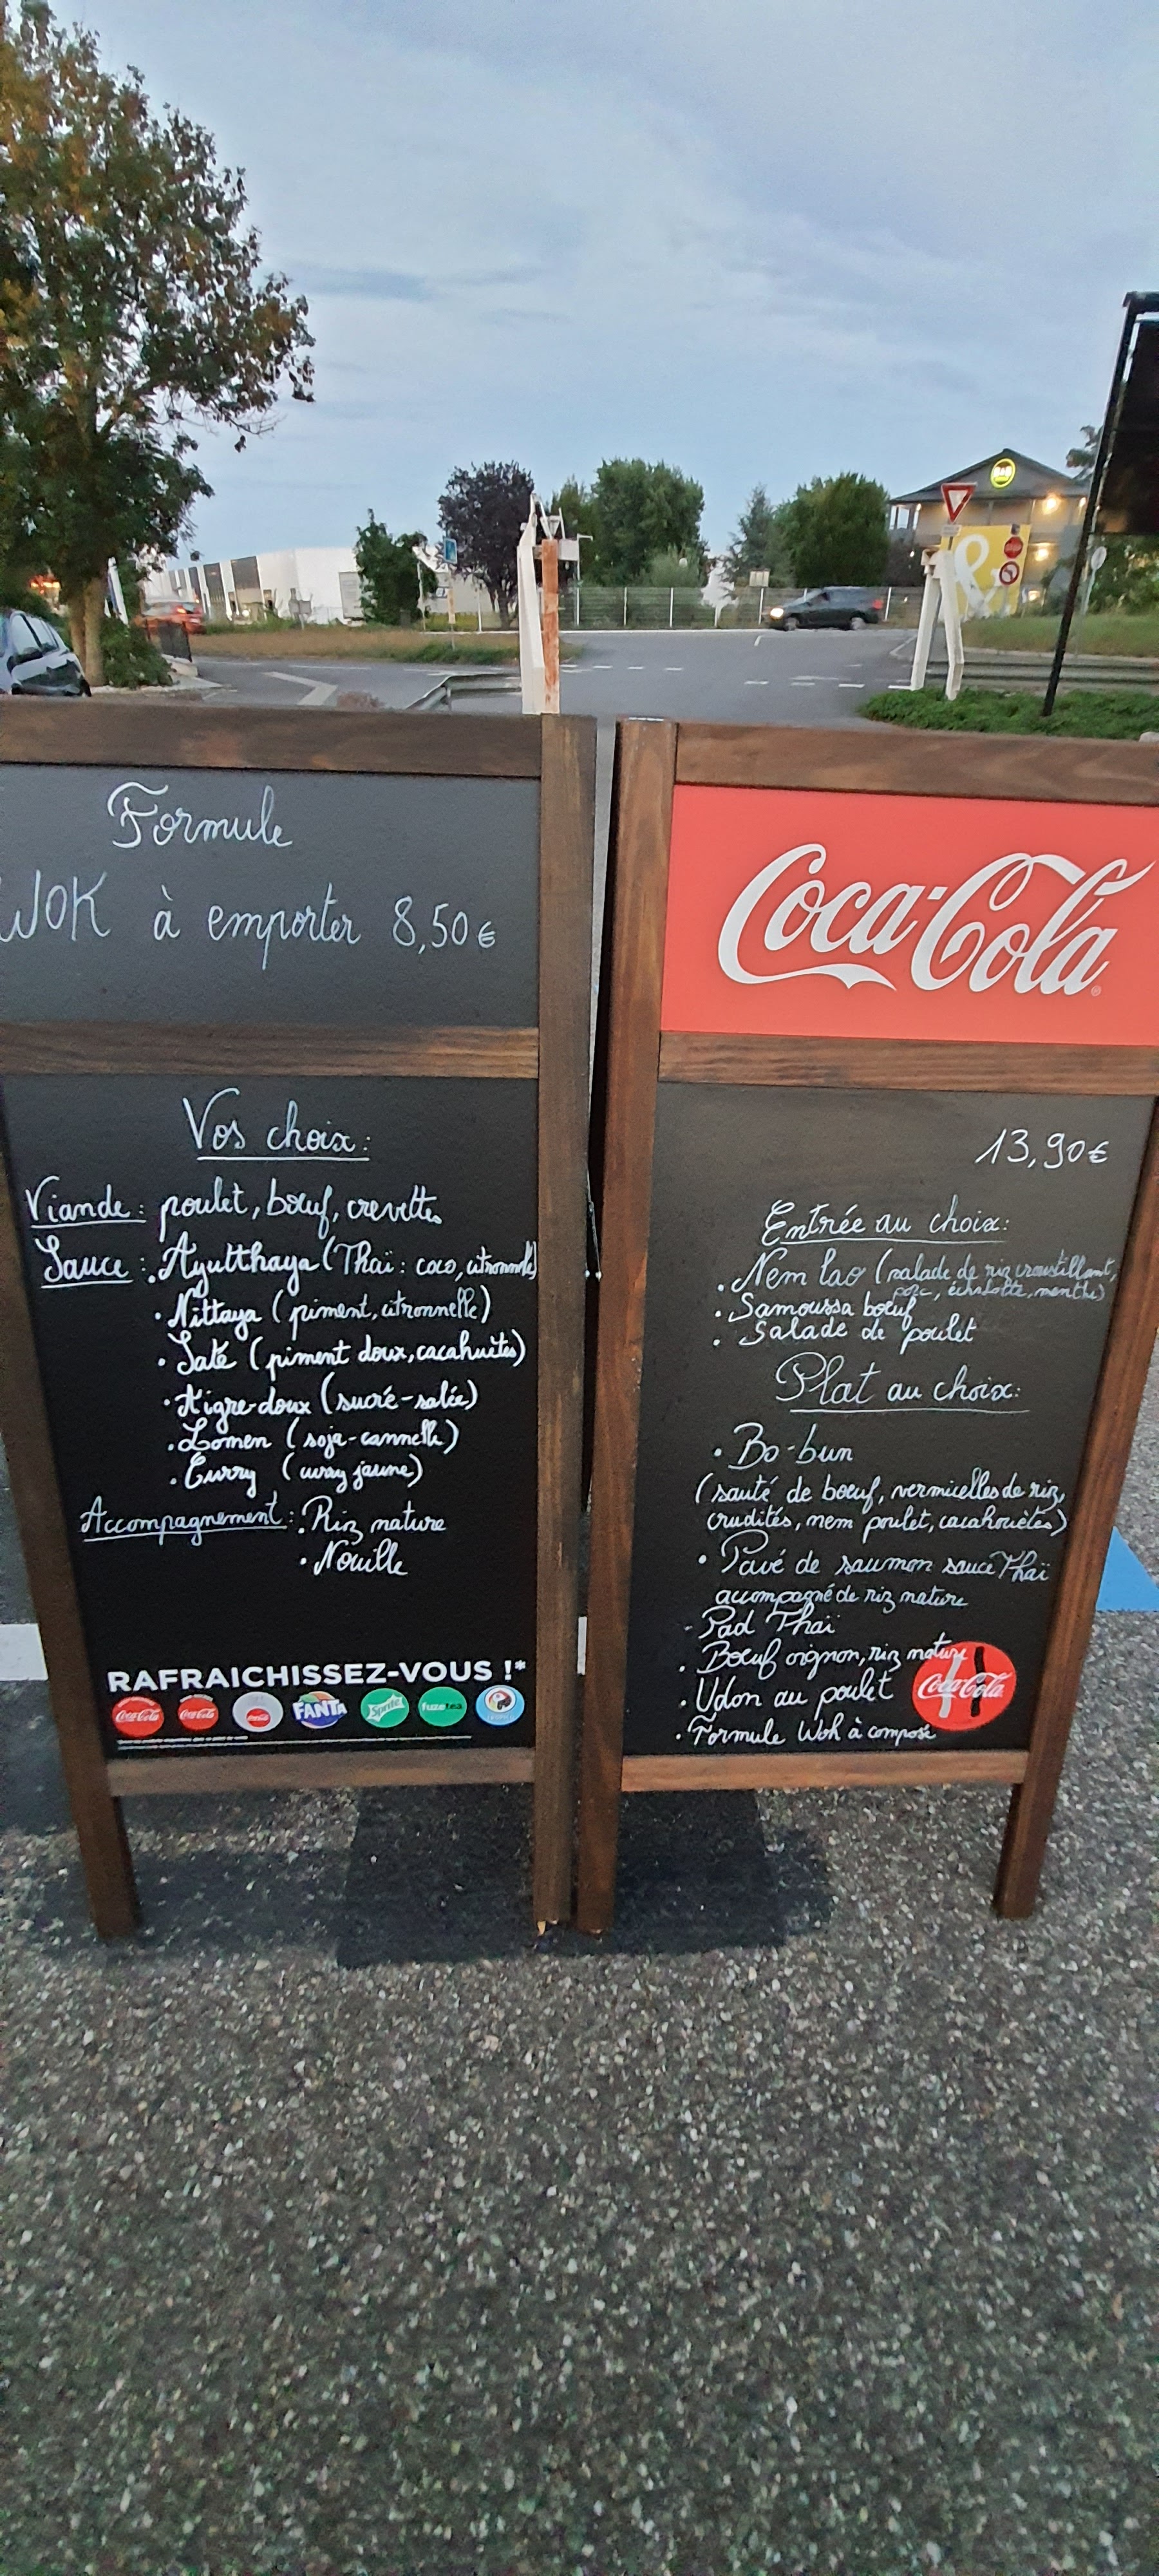 Formule
WOK à emporter 8,50€
Vos choix:
Viande: poulet, bœuf, crevettes
Sauce: . Ayutthaya (Thaï: coco, citronnelle)
. Nittaya (piment, citronnelle)
. Saté (piment doux, cacahuètes)
. Aigre-doux (sucré-salée)
. Lomen (soja-cannelle)
. Curry (curry jaune)
Accompagnement: . Riz nature
. Nouille
RAFRAICHISSEZ-VOUS !*
Coca-Cola Coca-Cola Coca-Cola FANTA Sprite fuzetea
Coca-Cola
13,90€
Entrée au choix:
. Nem lao (salade de riz croustillant,
porc, échalotte, menthe)
. Samoussa bœuf
. Salade de poulet
Plat au choix:
. Bo-bun
(sauté de bœuf, vermicelles de riz,
crudités, nem poulet, cacahouètes)
. Pavé de saumon sauce Thaï
accompagné de riz nature
- Pad Thaï
. Bœuf oignon, riz nature
. Udon au poulet
. Formule Wok à composé
Coca-Cola
B&B
STOP